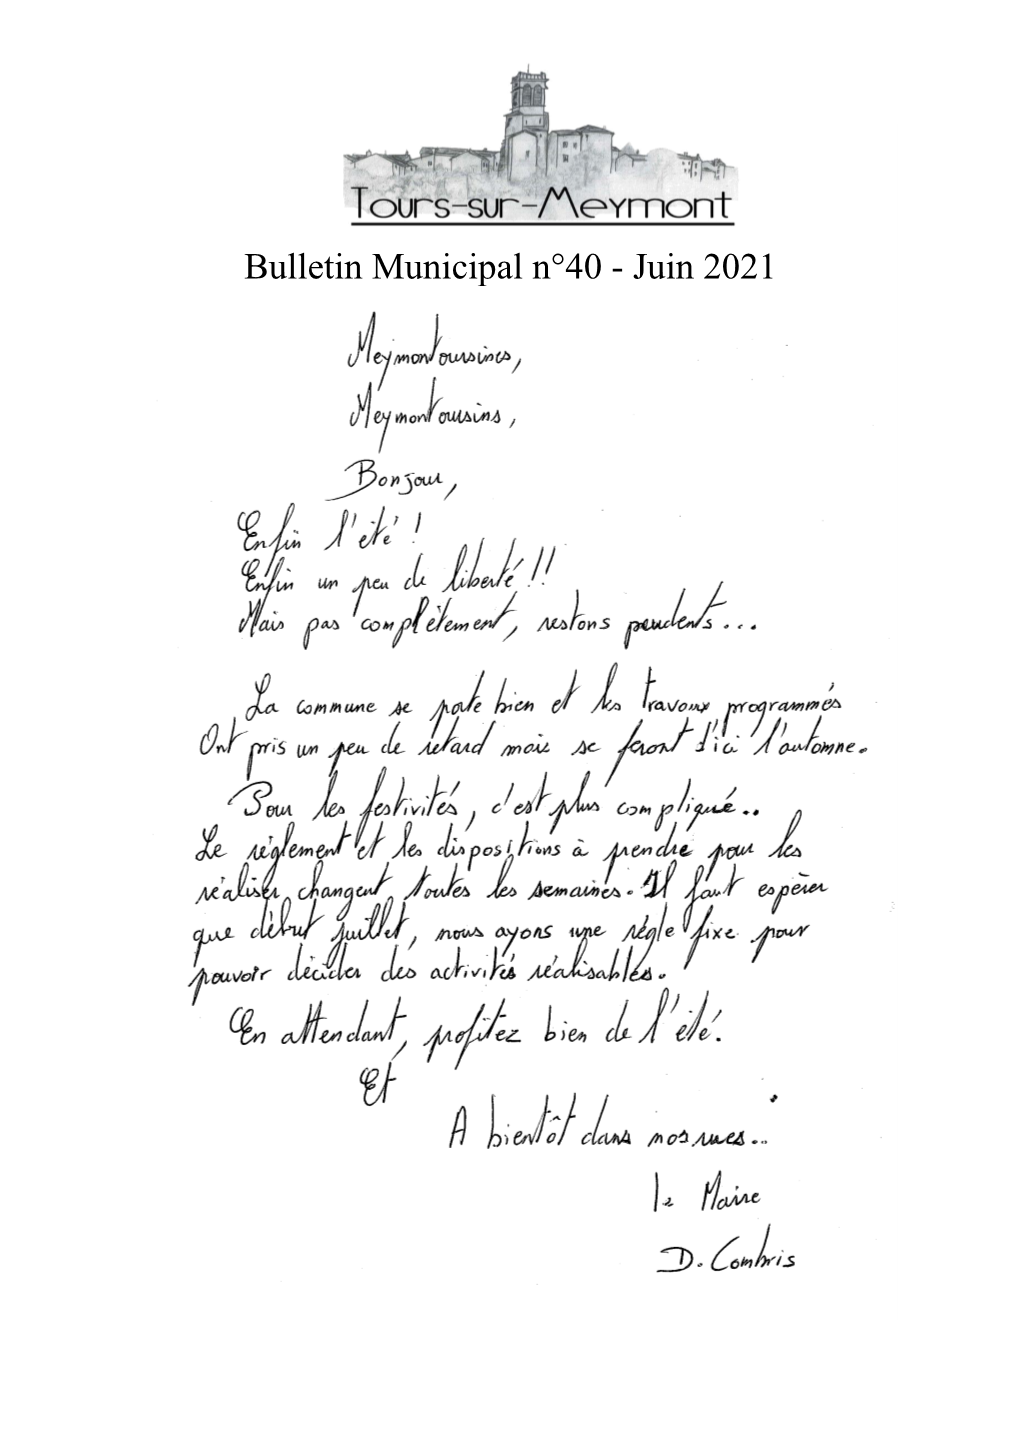 Tours-sur-Meymont
Bulletin Municipal n°40 - Juin 2021
Meymontoursines,
Meymontoursins,
Bonjour,
Enfin l'été !
Enfin un peu de liberté !!
Mais pas complètement, restons prudents...
La commune se porte bien et les travaux programmés
Ont pris un peu de retard mais se feront d'ici l'automne.
Pour les festivités, c'est plus compliqué..
Le règlement et les dispositions à prendre pour les
réaliser changent toutes les semaines. Il faut espérer
que début juillet, nous ayons une règle fixe pour
pouvoir décider des activités réalisables.
En attendant, profitez bien de l'été.
Et
A bientôt dans nos rues..
le Maire
D. Combris